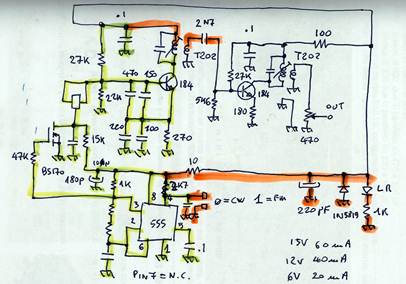 .1
2N7
.1
100
T202
T202
27K
470
150
184
27K
184
22K
5K6
180
OUT
220
100
270
470
15K
47K
BS170
10
180p
1K
2K7
0=CW 1=FM
8
4
3
2
555
6
1
5
.1
220µF
1N5819
LR
1K
15V 60mA
12V 40mA
6V 20mA
PIN7=N.C.